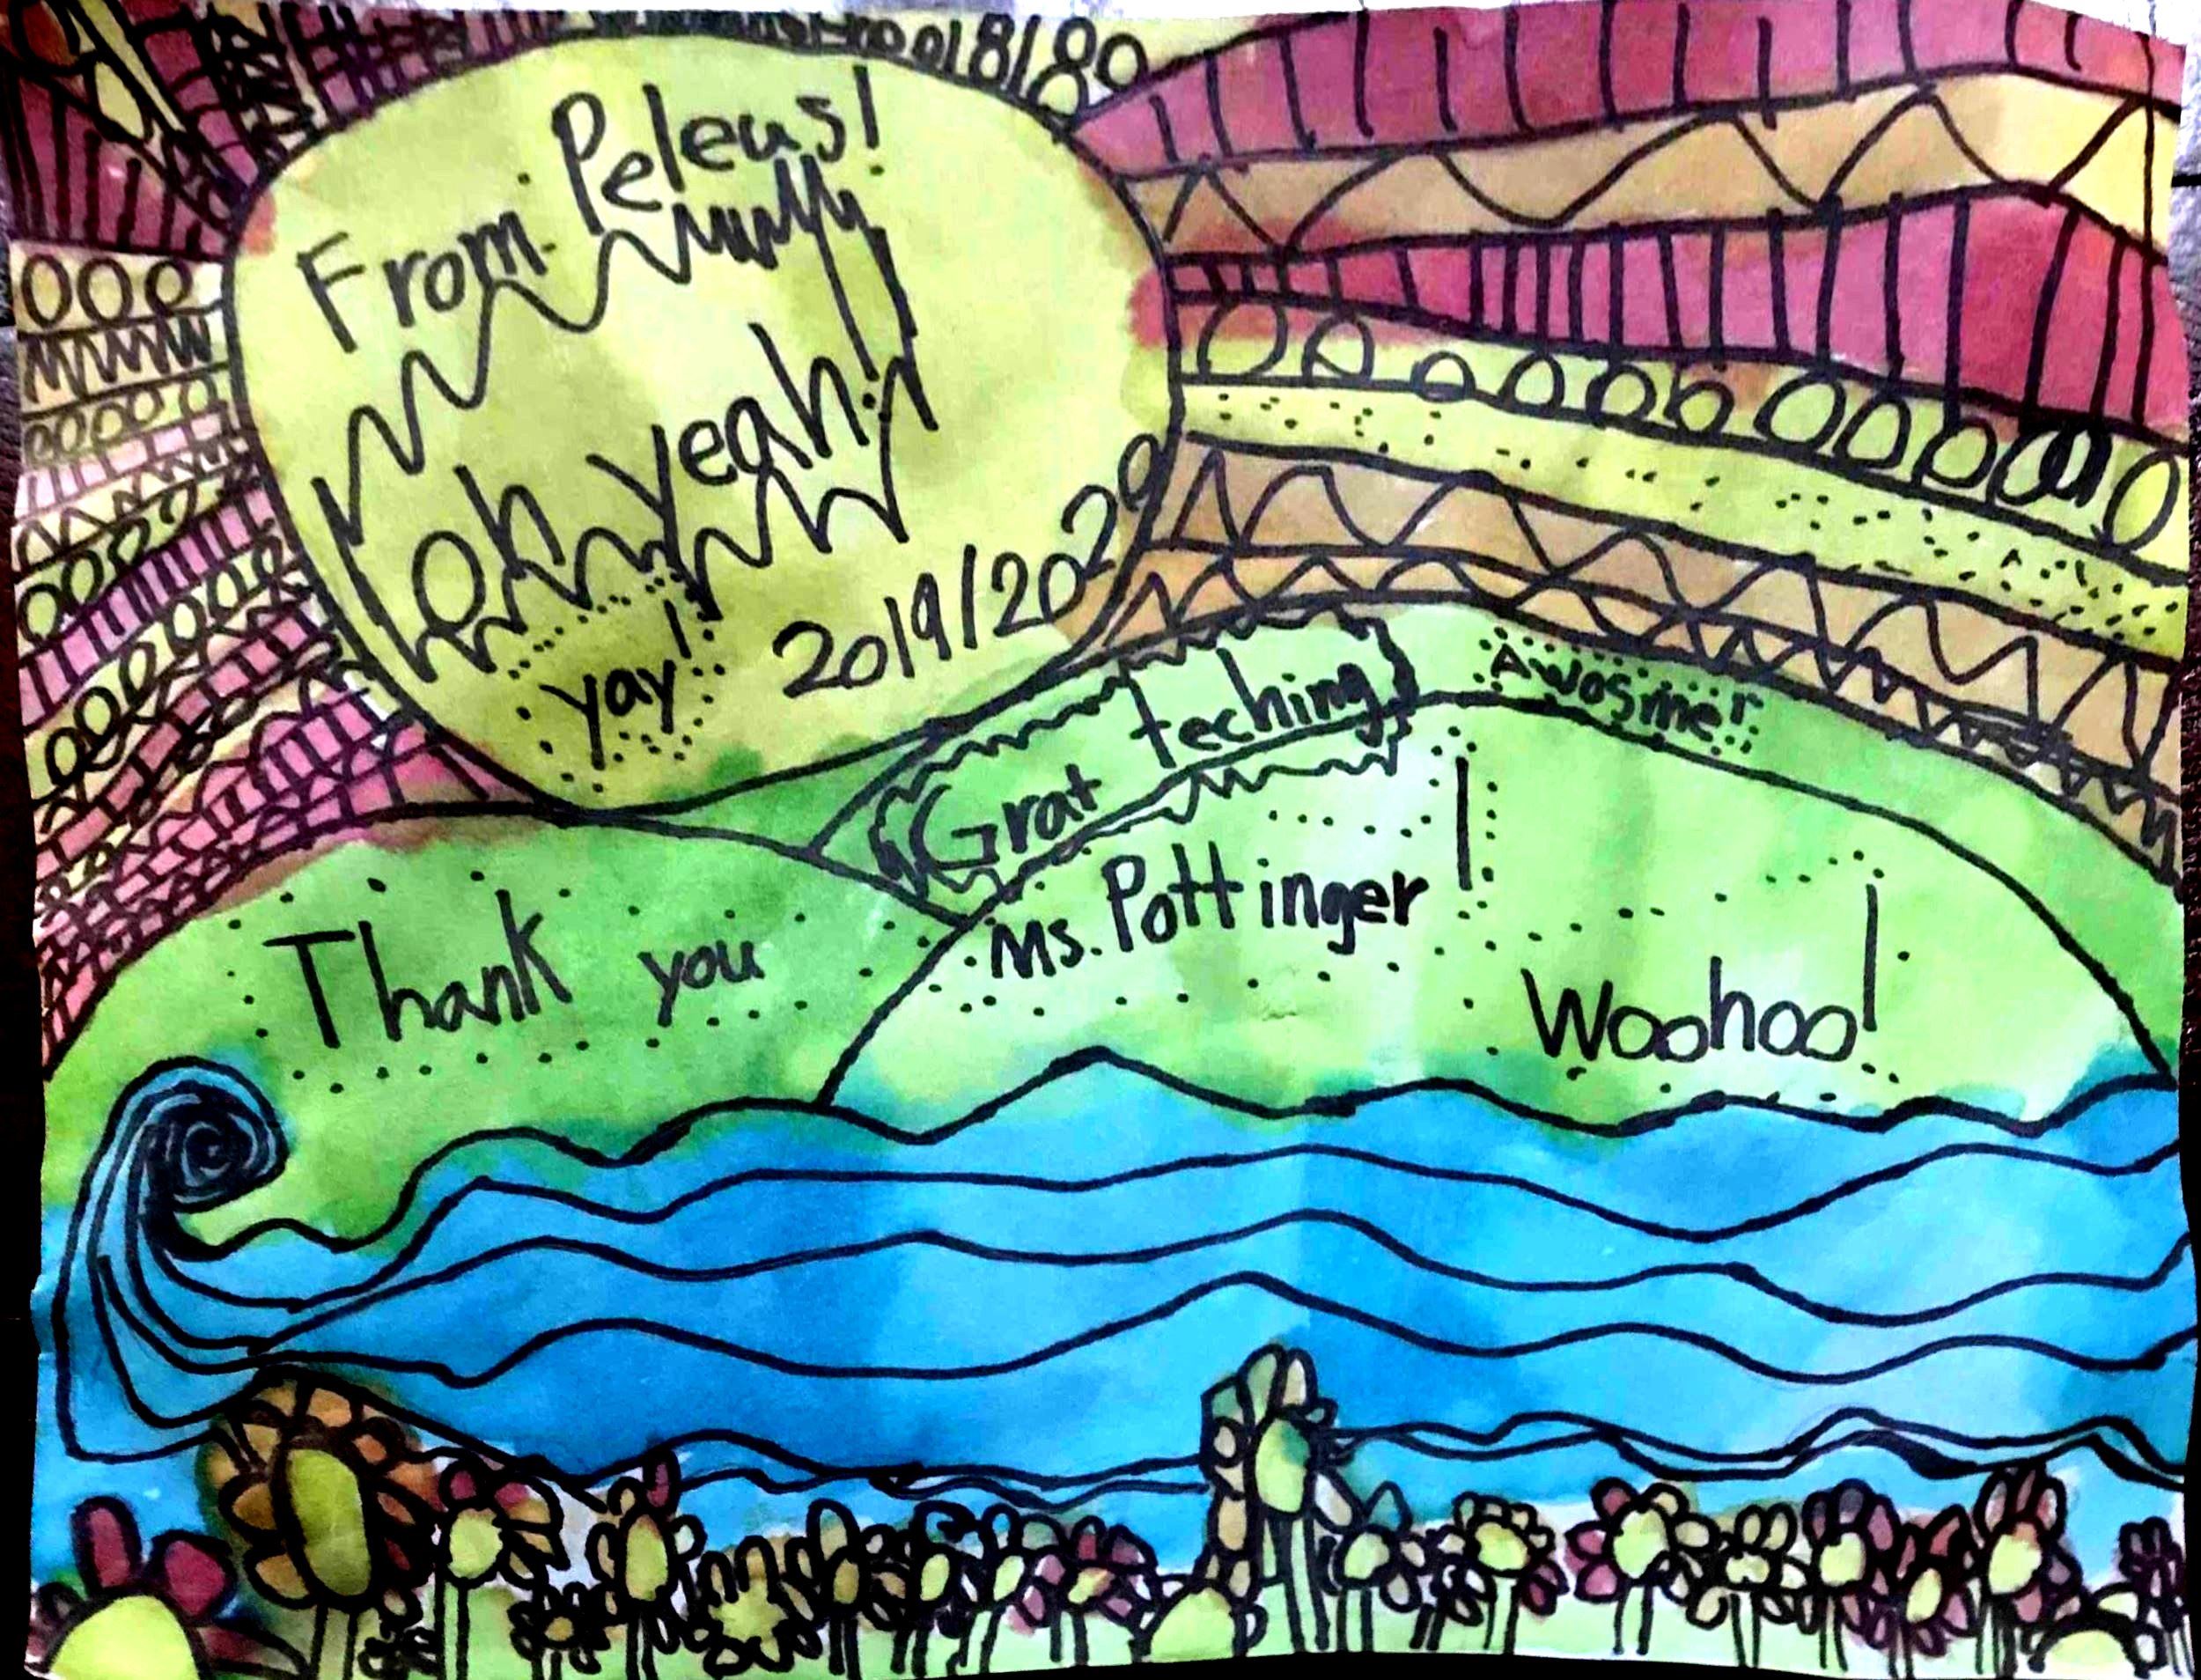 From Peleus!
oh yeah!
yay!
2019/2020
Grat teching
Awosme!
Thank you
Ms. Pottinger!
Woohoo!